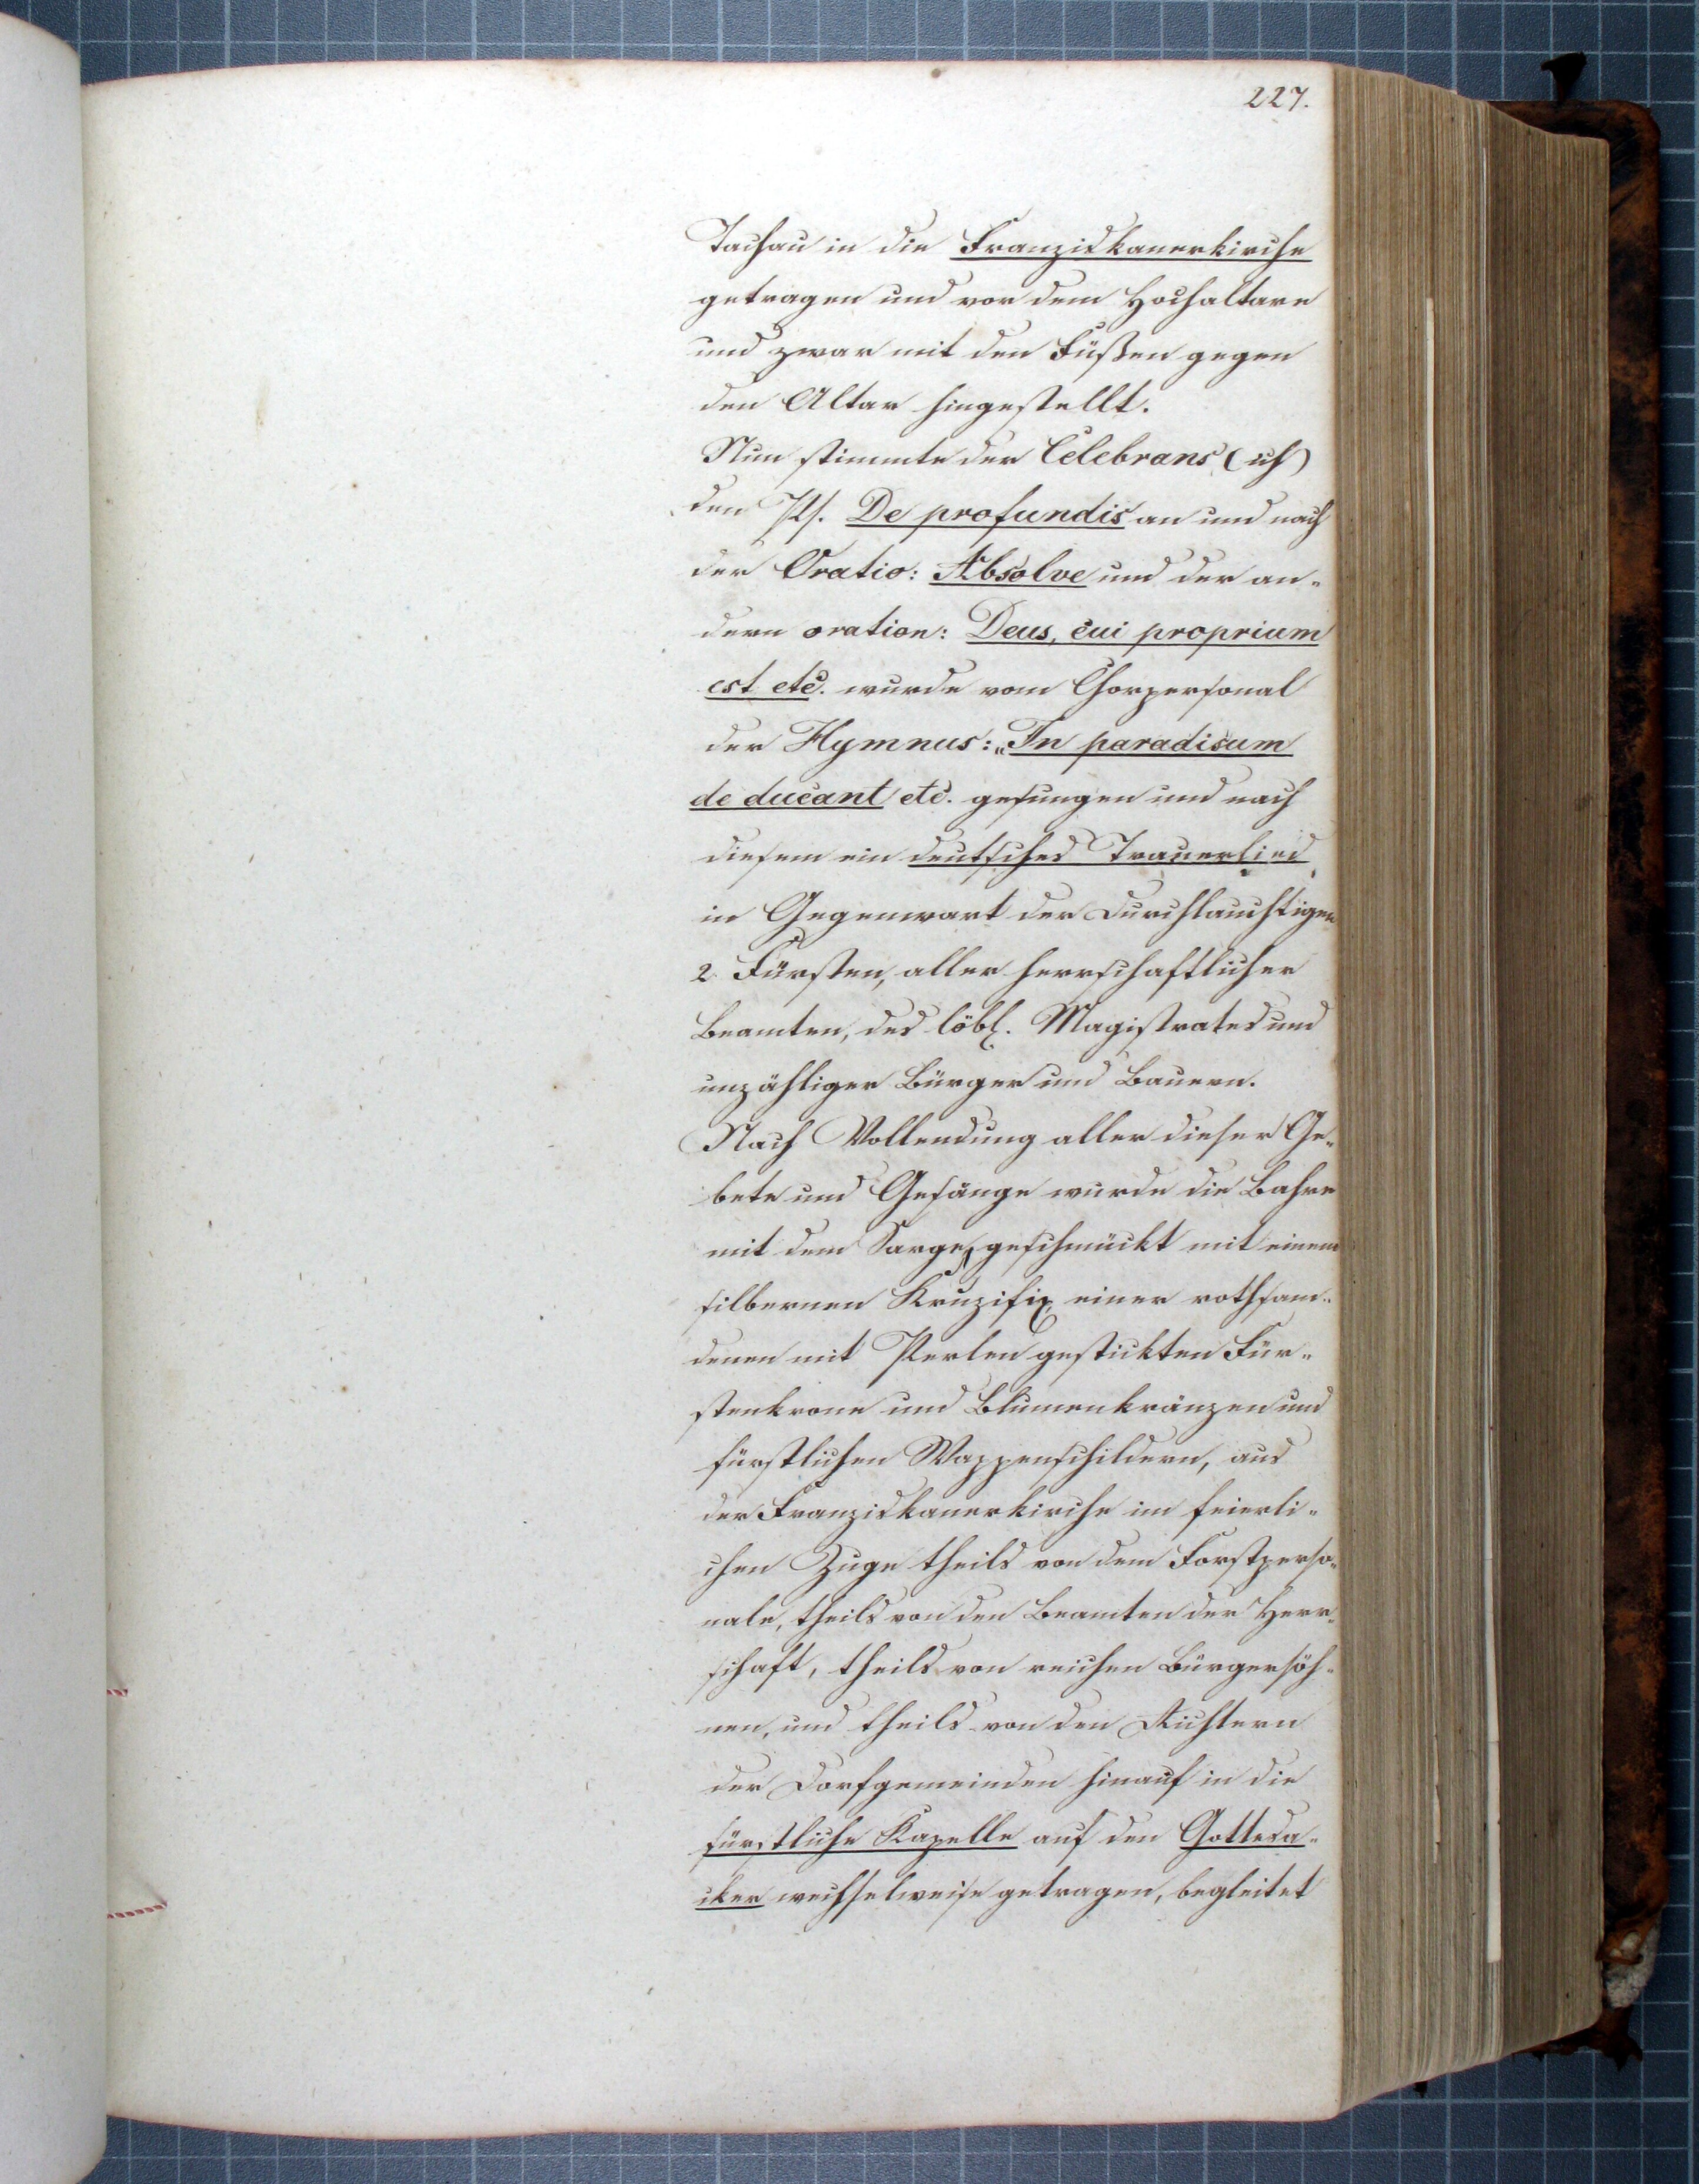 227.
Tachau in die Franziskanerkirche
getragen und vor dem Hochaltare
und zwar mit den Füßen gegen
den Altar hingestellt.
Nun stimmte der Celebrans (ich)
den Ps. De profundis an und nach
der Oratio: Absolve und der an-
dern oration: Deus, cui proprium
est etc. wurde vom Chorpersonal
der Hymnus: „In paradisum
de ducant etc. gesungen und nach
diesem ein deutsches Trauerlied
in Gegenwart der Durchlauchtigen
2 Fürsten, aller herrschaftlicher
Beamten, des löbl. Magistrates und
unzähliger Bürger und Bauern.
Nach Vollendung aller dieser Ge-
bete und Gesänge wurde die Bahre
mit dem Sarge, geschmückt mit einem
silbernen Kruzifix, einer rothsam-
denen mit Perlen gestickten Für-
stenkrone und Blumenkränzen und
fürstlichen Wappenschildern, aus
der Franziskanerkirche im feierli-
chen Zuge theils von dem Forstperso-
nale, theils von den Beamten der Herr-
schaft, theils von reichen Bürgersöh-
nen, und theils von den Richtern
der Dorfgemeinden hinauf in die
fürstliche Kapelle auf den Gottesa-
cker wechselweise getragen, begleitet